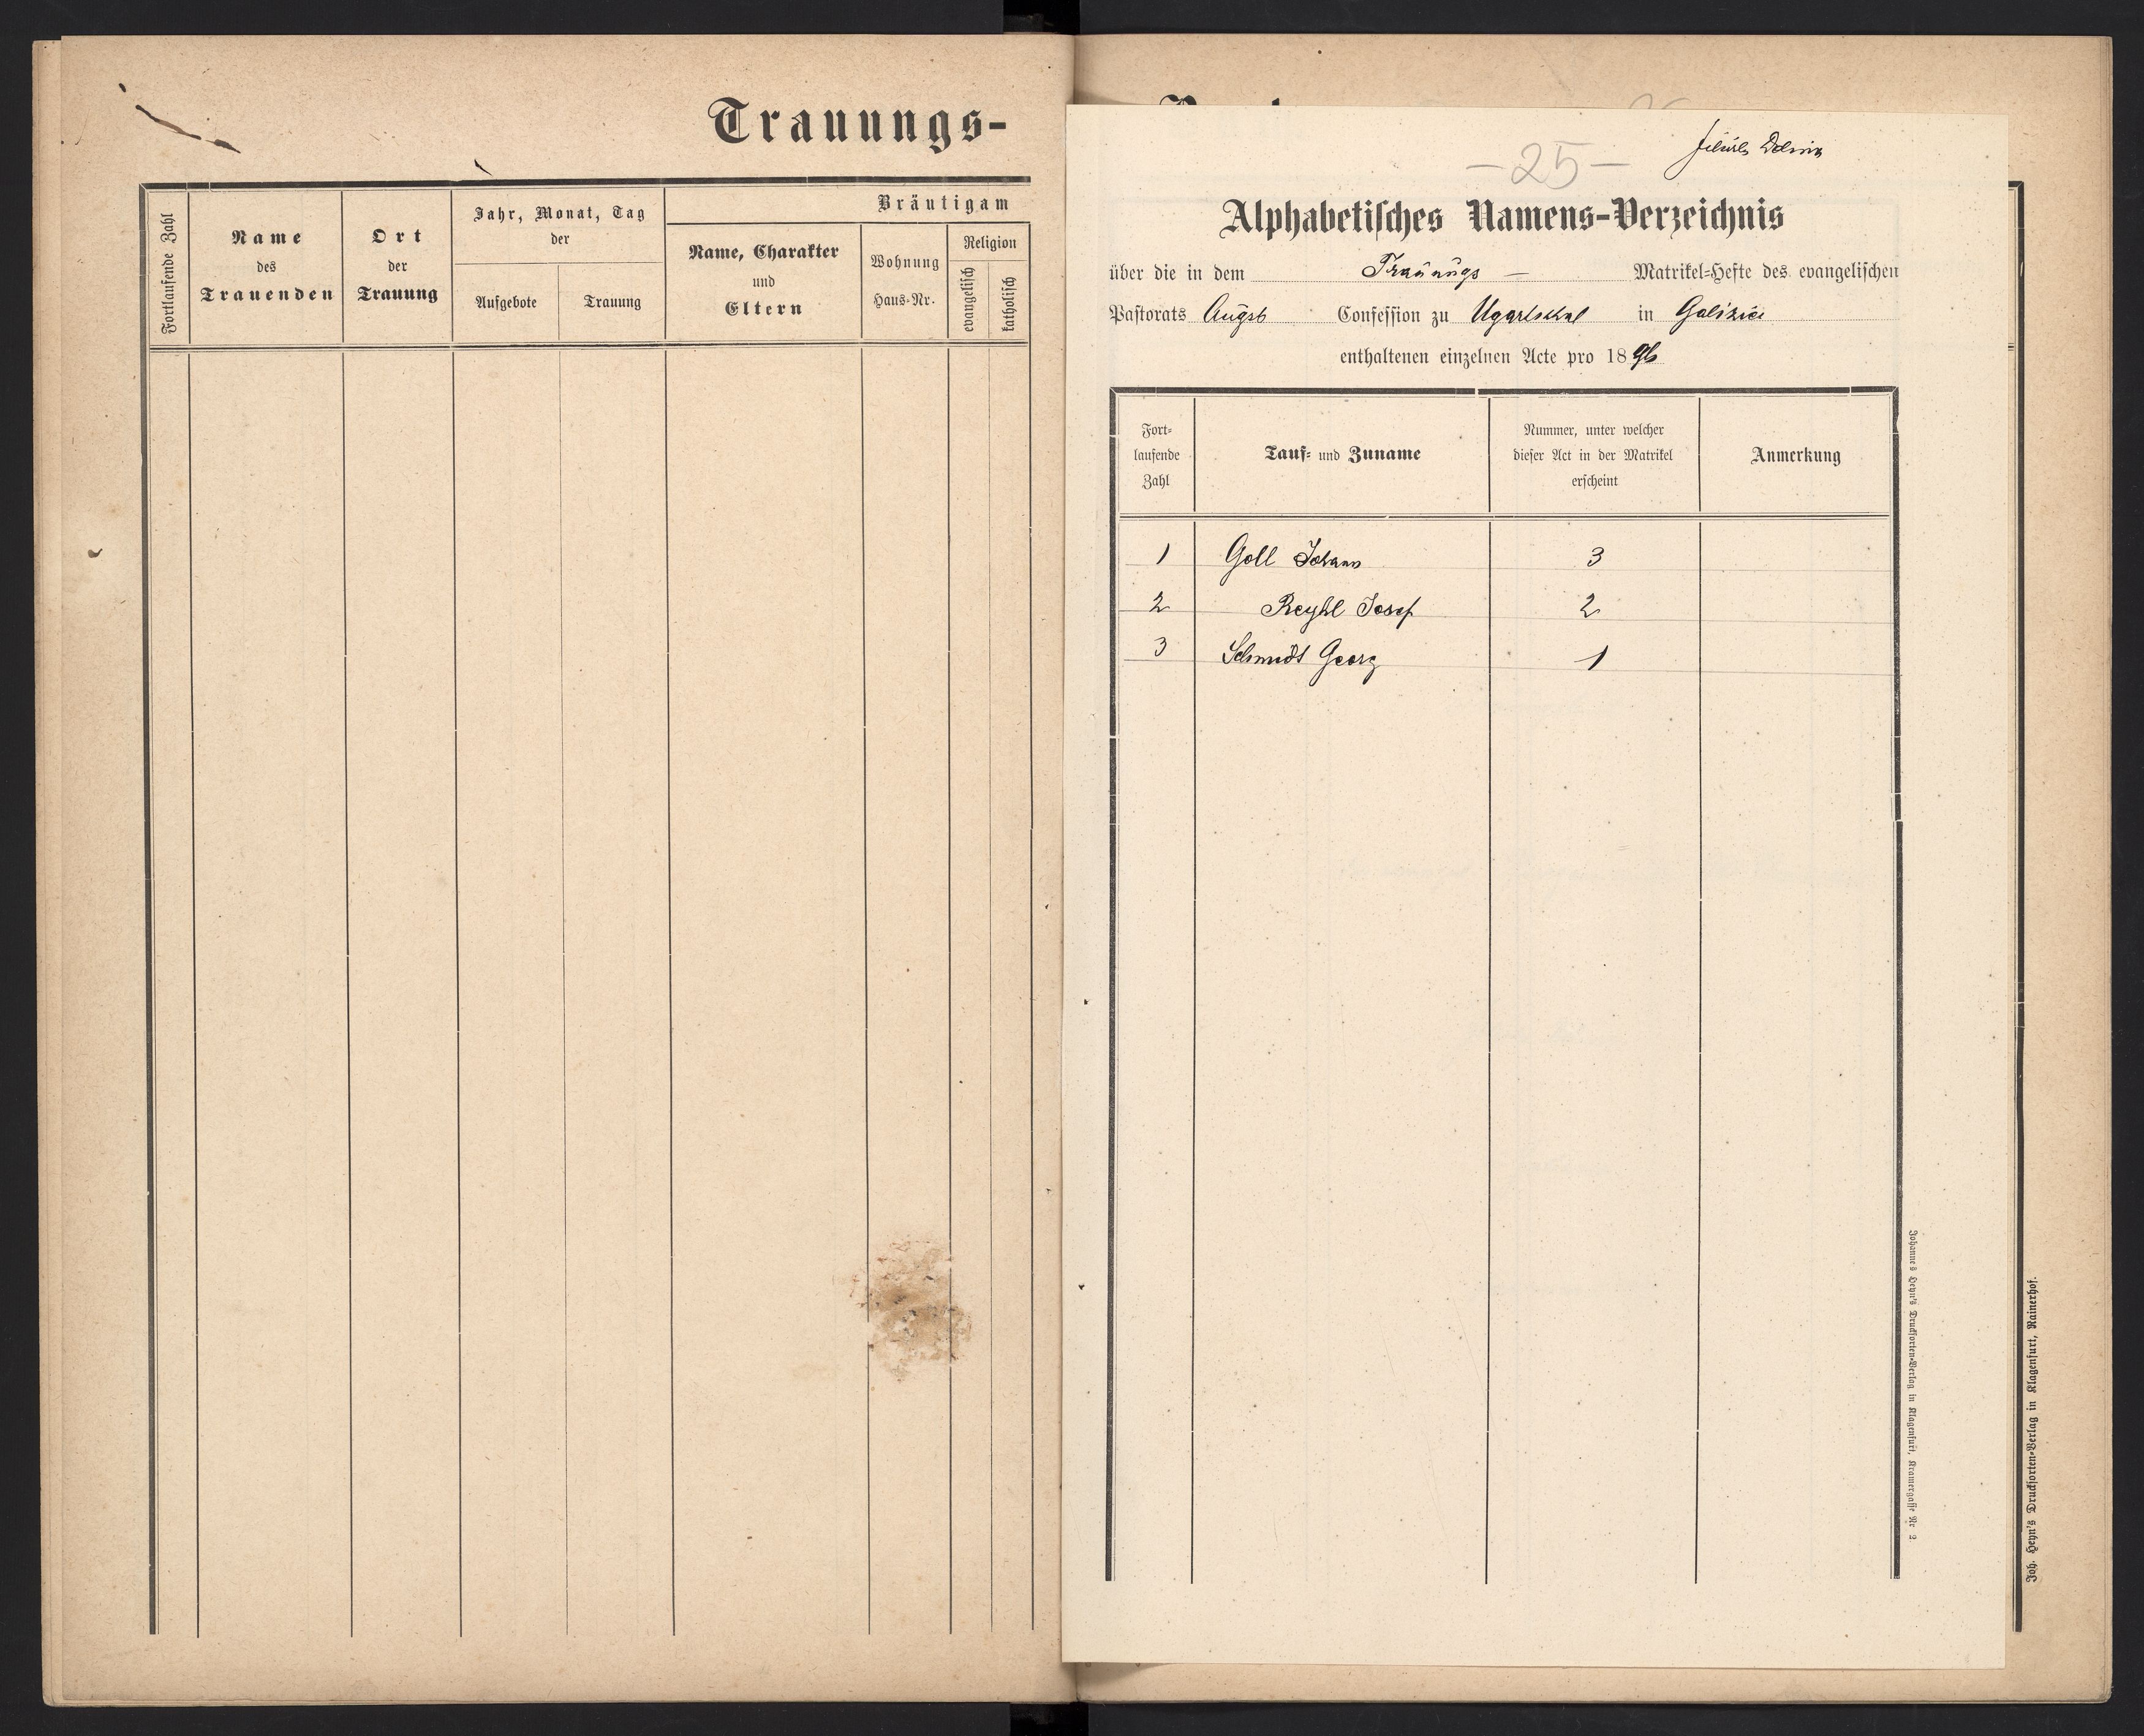 Trauungs-
Fortlaufende Zahl
Name
des
Trauenden
Ort
der
Trauung
Jahr, Monat, Tag
der
Aufgebote
Trauung
Bräutigam
Name, Charakter
und
Eltern
Wohnung
Haus-Nr.
Religion
evangelisch
katholisch
-25-
Dolina
Alphabetisches Namens-Verzeichnis
über die in dem Trauungs — Matrikel-Hefte des evangelischen
Pastorats Augsb Confession zu Ugartsthal in Galizien
enthaltenen einzelnen Acte pro 1896
Fort-
laufende
Zahl
Tauf- und Zuname
Nummer, unter welcher
dieser Act in der Matrikel
erscheint
Anmerkung
1 Goll Johann 3
2 Reyhl Josef 2
3 Schmidt Georg 1
Johannes Heyn's Drucksorten-Verlag in Klagenfurt, Kramergasse Nr 2
Joh. Heyn's Drucksorten-Verlag in Klagenfurt, Rainerhof.